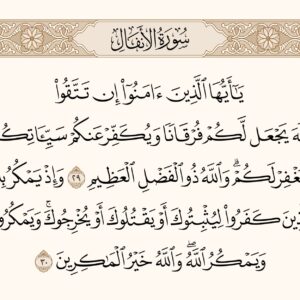 سُورَةُ الأَنفَالِ
يَٰٓأَيُّهَا ٱلَّذِينَ ءَامَنُوٓا۟ إِن تَتَّقُوا۟
يَجْعَل لَّكُمْ فُرْقَانًا وَيُكَفِّرْ عَنكُمْ سَيِّـَٔاتِكُ
غْفِرْ لَكُمْ ۗ وَٱللَّهُ ذُو ٱلْفَضْلِ ٱلْعَظِيمِ ٢٩ وَإِذْ يَمْكُرُ بِ
ينَ كَفَرُوا۟ لِيُثْبِتُوكَ أَوْ يَقْتُلُوكَ أَوْ يُخْرِجُوكَ ۚ وَيَمْكُرُو
وَيَمْكُرُ ٱللَّهُ ۖ وَٱللَّهُ خَيْرُ ٱلْمَٰكِرِينَ ٣٠